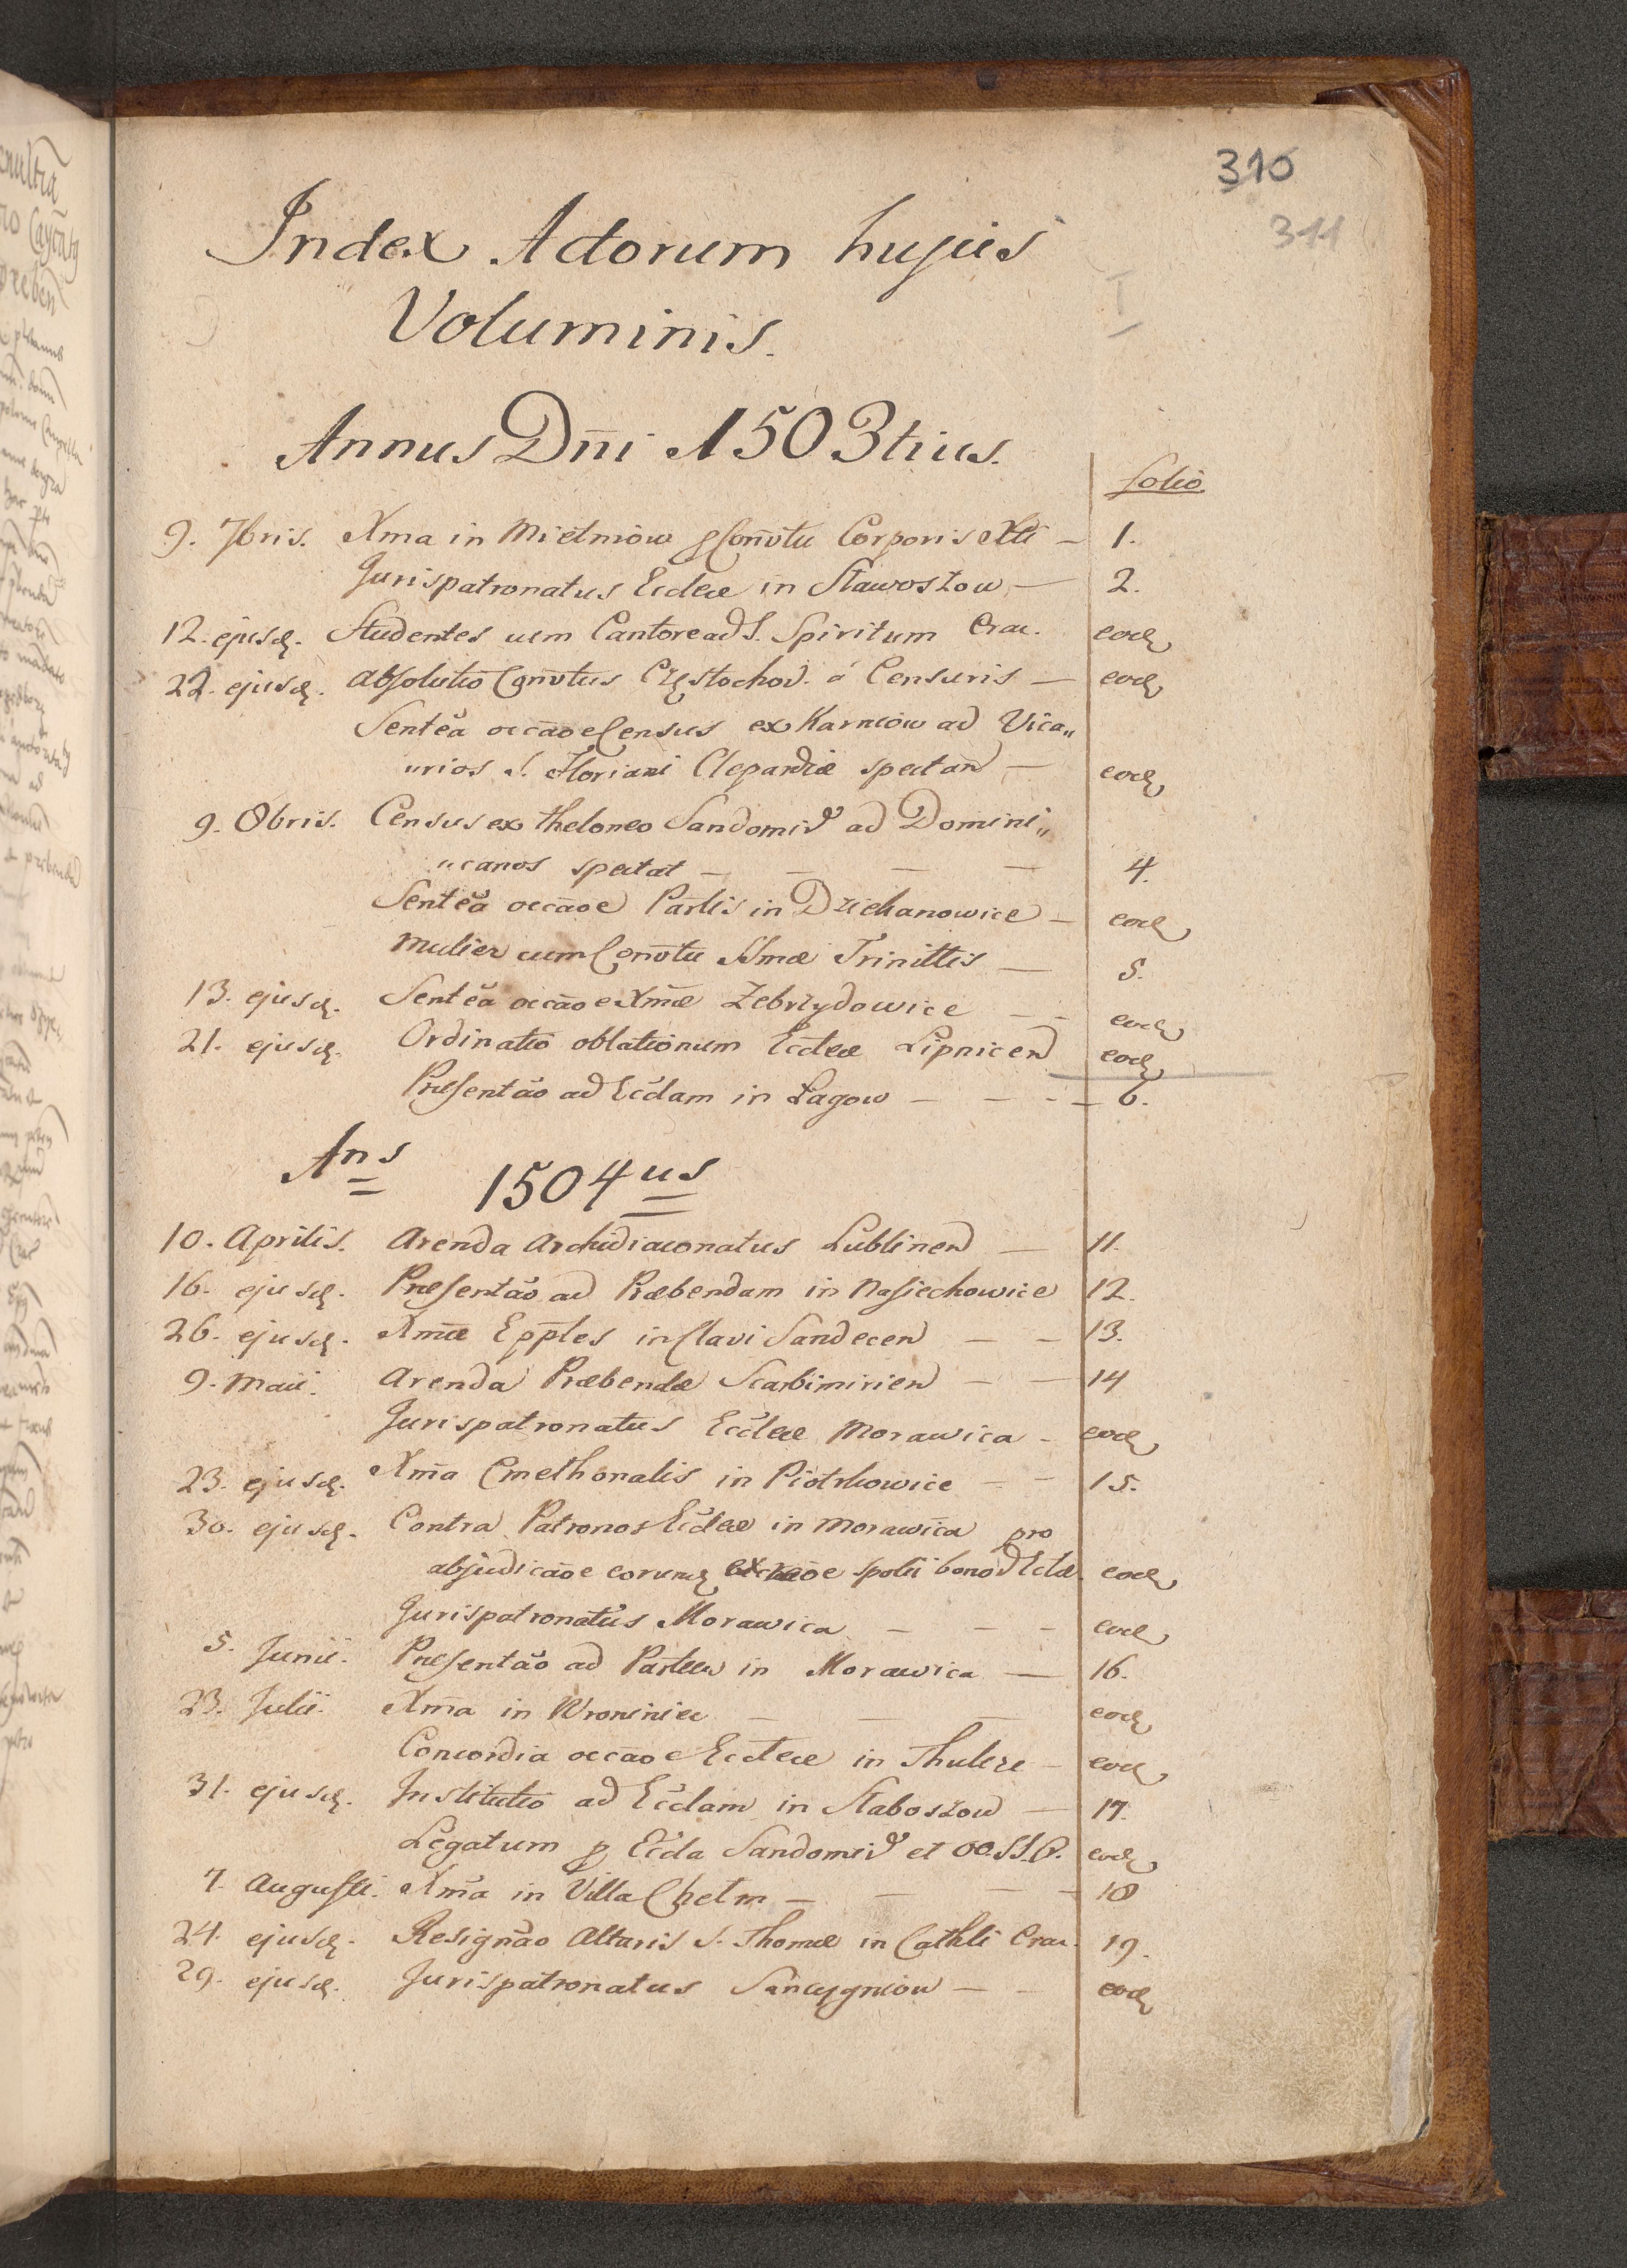 310
311
I
Index Actorum hujus
Voluminis.
Annus Dn̄i 1503tius.
folio
9. 7bris. Xma in Mietniow p Con̄vtu Corporis Xti — 1.
Jurispatronatus Eccl̄ae in Stawoszow — 2.
12. ejusd. Studentes cum Cantore ad S. Spiritum Crac. eod
22. ejusd. Absolutio Con̄vtus Częstochov. á Censuris — eod
Sentēa occāoe Census ex Karniow ad Vica„
„rios S. Floriani Clepardiæ spectan̄ — eod
9. 8bris. Census ex theloneo Sandomir̄ ad Domini„
„canos spectat — — — — 4.
Sentēa occāoe Partis in Dziekanowice — eod
Mulier cum Con̄vtu SSmæ Trinit̄tis — 5.
13. ejusd. Sentēa occāoe Xm̄æ Zebrzydowice — — eod
21. ejusd. Ordinatio oblationum Eccl̄æ Lipnicen̄ eod
Præsentāo ad Eccl̄am in Lagow — — - — 6.
An̲s̲ 1504us
10. Aprilis. Arenda Archidiaconatus Lublinen̄ — 11.
16. ejusd. Præsentāo ad Præbendam in Nasiechowice 12.
26. ejusd. Xm̄æ Ep̄p̄les in Clavi Sandecen̄ — — 13.
9. Maii. Arenda Præbendæ Scarbimirien̄ — — 14
Jurispatronatus Eccl̄æ Morawica - eod
23. ejusd. Xm̄a Cmethonalis in Piotrkowice — - 15.
30. ejusd. Contra Patronos Eccl̄æ in Morawica pro
abjudicāoe eorumd spolii bonor̄ Ecl̄æ. eod
Jurispatronatus Morawica — — - eod
5. Junii. Præsentāo ad in Morawica — 16.
23. Julii. Xm̄a in Wroniniec — — — eod
Concordia occāoe Eccl̄æ in Thulcze — eod
31. ejusd. Institutio ad Eccl̄am in Slaboszow — 17.
Legatum p Eccl̄a Sandomir̄ et OO.SS.P. eod
7. Augusti. Xm̄a in Villa Chelm — — — - 18
24. ejusd. Resignāo Altaris S. Thomæ in Cathl̄i Crac. 19.
29. ejusd. Jurispatronatus Sancygniow — - eod